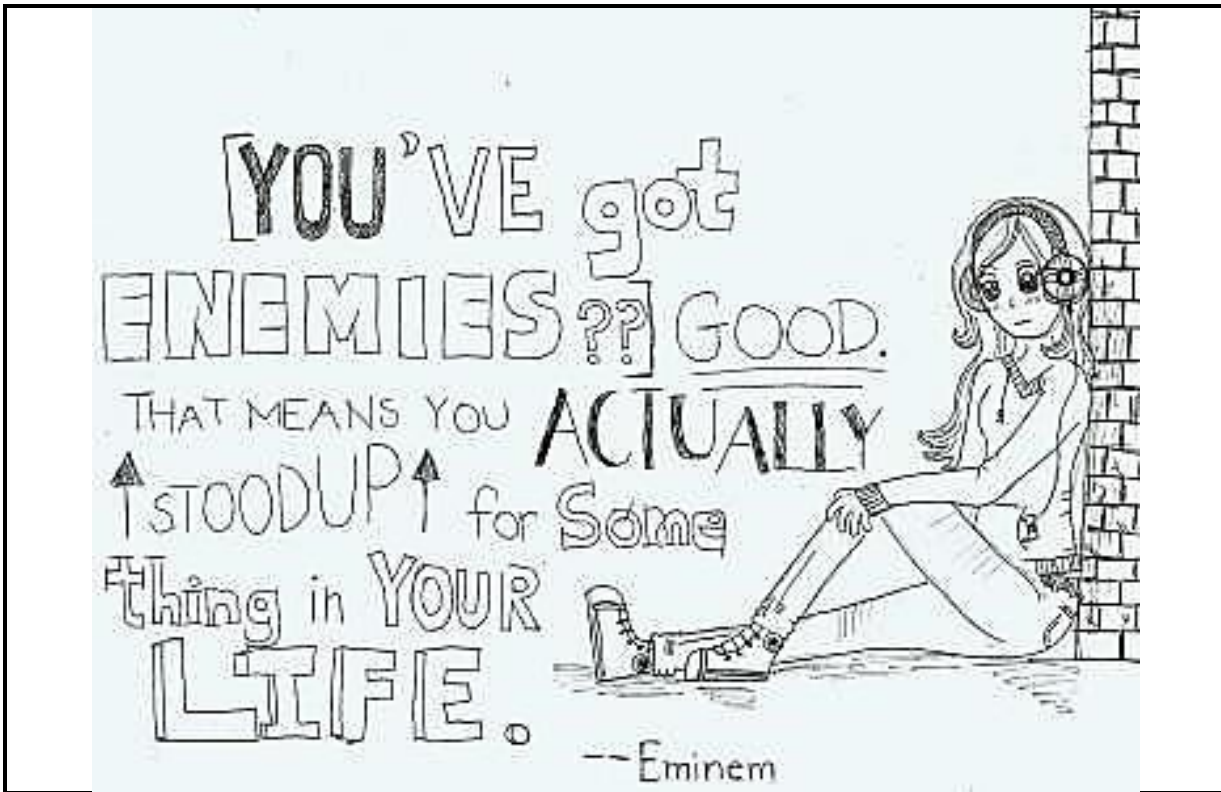 [YOU'VE got
ENEMIES??] GOOD.
THAT MEANS YOU ACTUALLY
STOOD UP for Some
thing in YOUR
LIFE.
-- Eminem